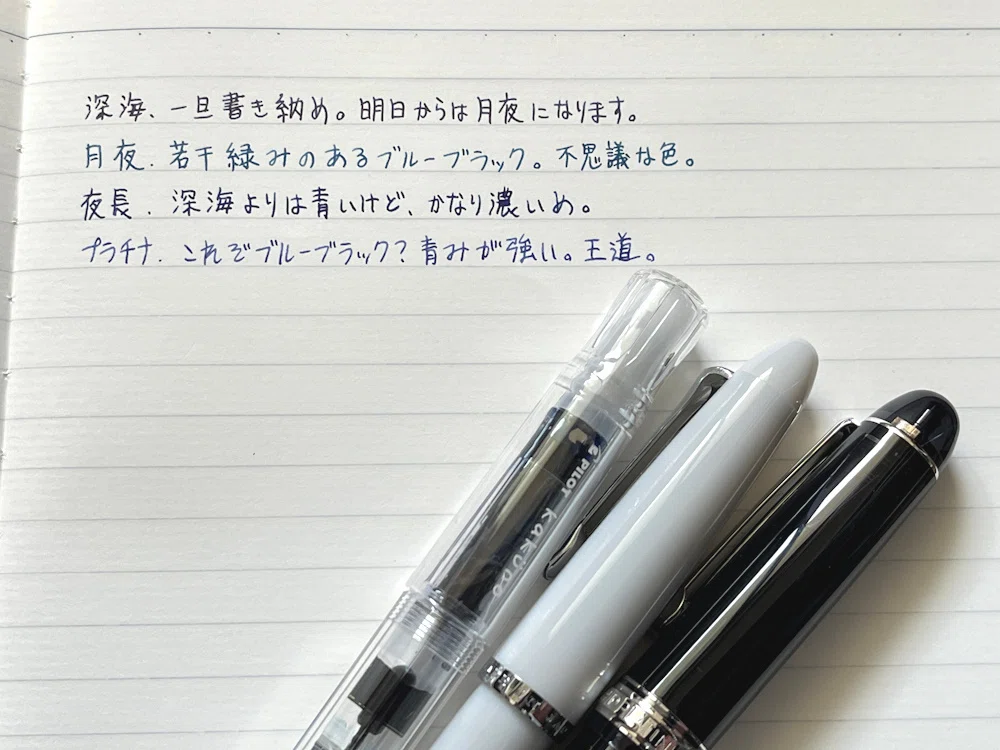 深海、一旦書き納め。明日からは月夜になります。
月夜.若干緑みのあるブルーブラック。不思議な色。
夜長.深海よりは青いけど、かなり濃いめ。
プラチナ.これぞブルーブラック?青みが強い。王道。
PILOT kakuno